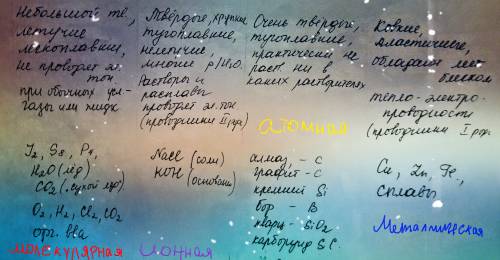 Небольшой тв.,
летучие
легкоплавкие,
не проводят эл.
ток
при обычных усл-
газы или жидк
I₂, S₈, P₄,
H₂O (лёд)
CO₂ (сухой лёд)
O₂, H₂, Cl₂, CO₂
орг. вва
МОЛЕКУЛЯРНАЯ
Твёрдые, хрупкие
тугоплавкие,
нелетучие,
многие р/H₂O.
Растворы и
расплавы
проводят эл. ток
(проводники II рода)
NaCl (соли)
KOH (основания)
ИОННАЯ
Очень твёрдые,
тугоплавкие,
практически не
раств. ни в
каких растворителях
АТОМНАЯ
алмаз - C
графит - C
кремний Si
бор - B
кварц - SiO₂
карборунд SC.
Ковкие,
пластичные,
обладают мет
блеском
тепло-электро-
проводности
(проводники I рода)
Cu, Zn, Fe,
сплавы
Металлическая